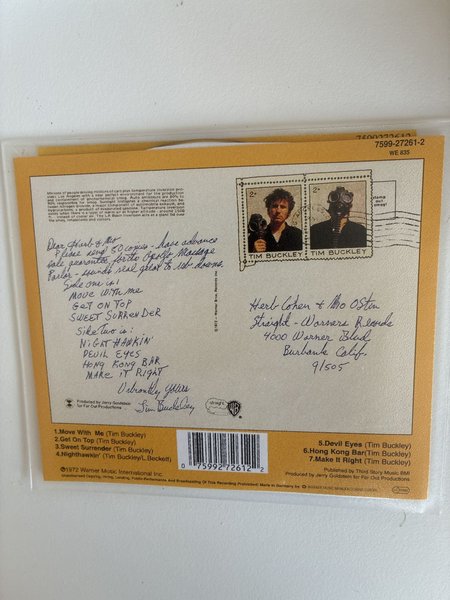 7599-27261-2
WE 835
Dear Herb & Mo
Please send 50 copies - have advance
sale guarantee for the Apollo Massage
Parlor - sounds real great to rub downs.
Side one is:
MOVE WITH ME
GET ON TOP
SWEET SURRENDER
Side Two is:
NIGHT HAWKIN'
DEVIL EYES
HONG KONG BAR
MAKE IT RIGHT
Vibrantly Yours
Tim Buckley
2¢
2¢
TIM BUCKLEY
TIM BUCKLEY
Herb Cohen & Mo Ostin
Straight - Warners Records
4000 Warner Blvd
Burbank Calif.
91505
Produced by Jerry Goldstein
for Far Out Productions
straight
1.Move With Me (Tim Buckley)
2.Get On Top (Tim Buckley)
3.Sweet Surrender (Tim Buckley)
4.Nighthawkin' (Tim Buckley/L.Beckett)
0 75992 72612 2
5.Devil Eyes (Tim Buckley)
6.Hong Kong Bar (Tim Buckley)
7.Make It Right (Tim Buckley)
Published by Third Story Music BMI
Produced by Jerry Goldstein for Far Out Productions
©1972 Warner Music International Inc.
Unauthorized Copying, Hiring, Lending, Public Performance And Broadcasting Of This Recording Prohibited. Made in Germany by